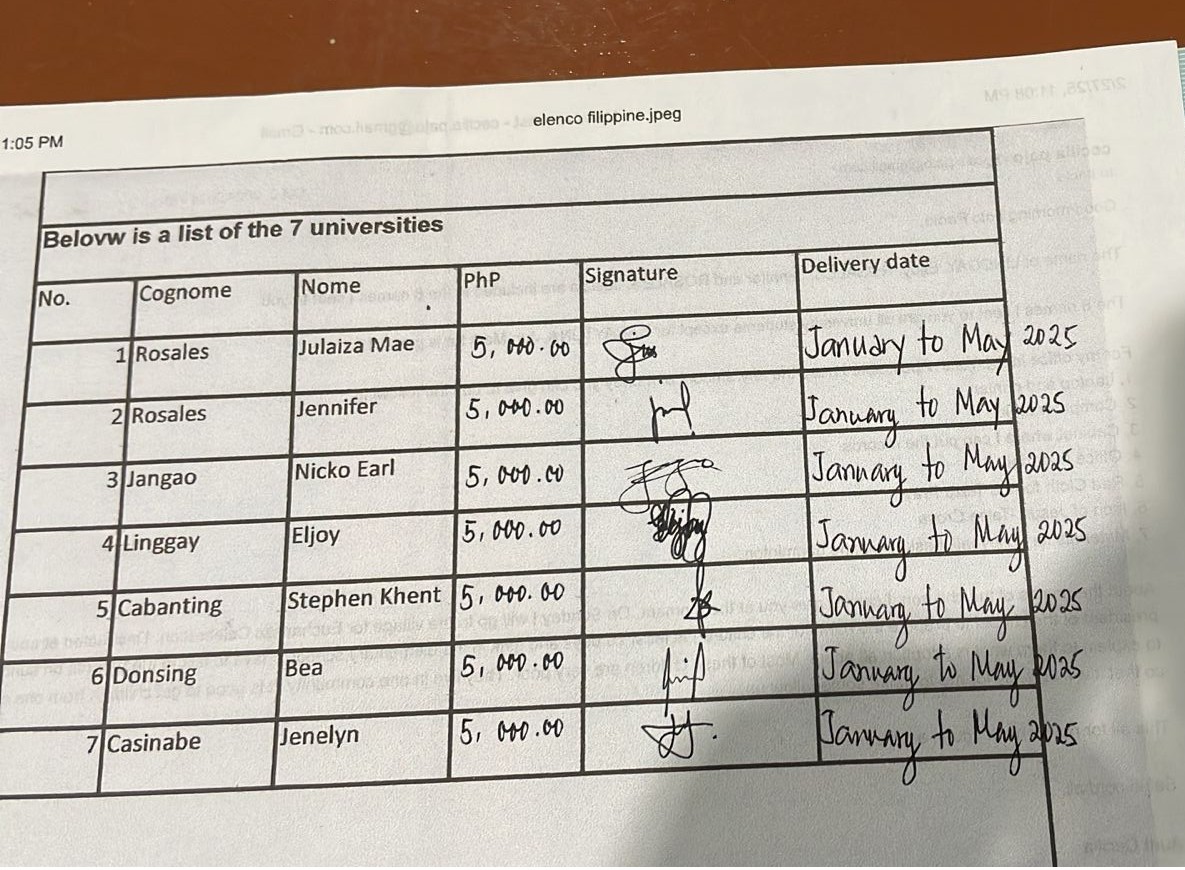 1:05 PM
elenco filippine.jpeg
Belovw is a list of the 7 universities
No. Cognome Nome PhP Signature Delivery date
1 Rosales Julaiza Mae 5,000.00 January to May 2025
2 Rosales Jennifer 5,000.00 January to May 2025
3 Jangao Nicko Earl 5,000.00 January to May 2025
4 Linggay Eljoy 5,000.00 Eljoy January to May 2025
5 Cabanting Stephen Khent 5,000.00 January to May 2025
6 Donsing Bea 5,000.00 January to May 2025
7 Casinabe Jenelyn 5,000.00 January to May 2025